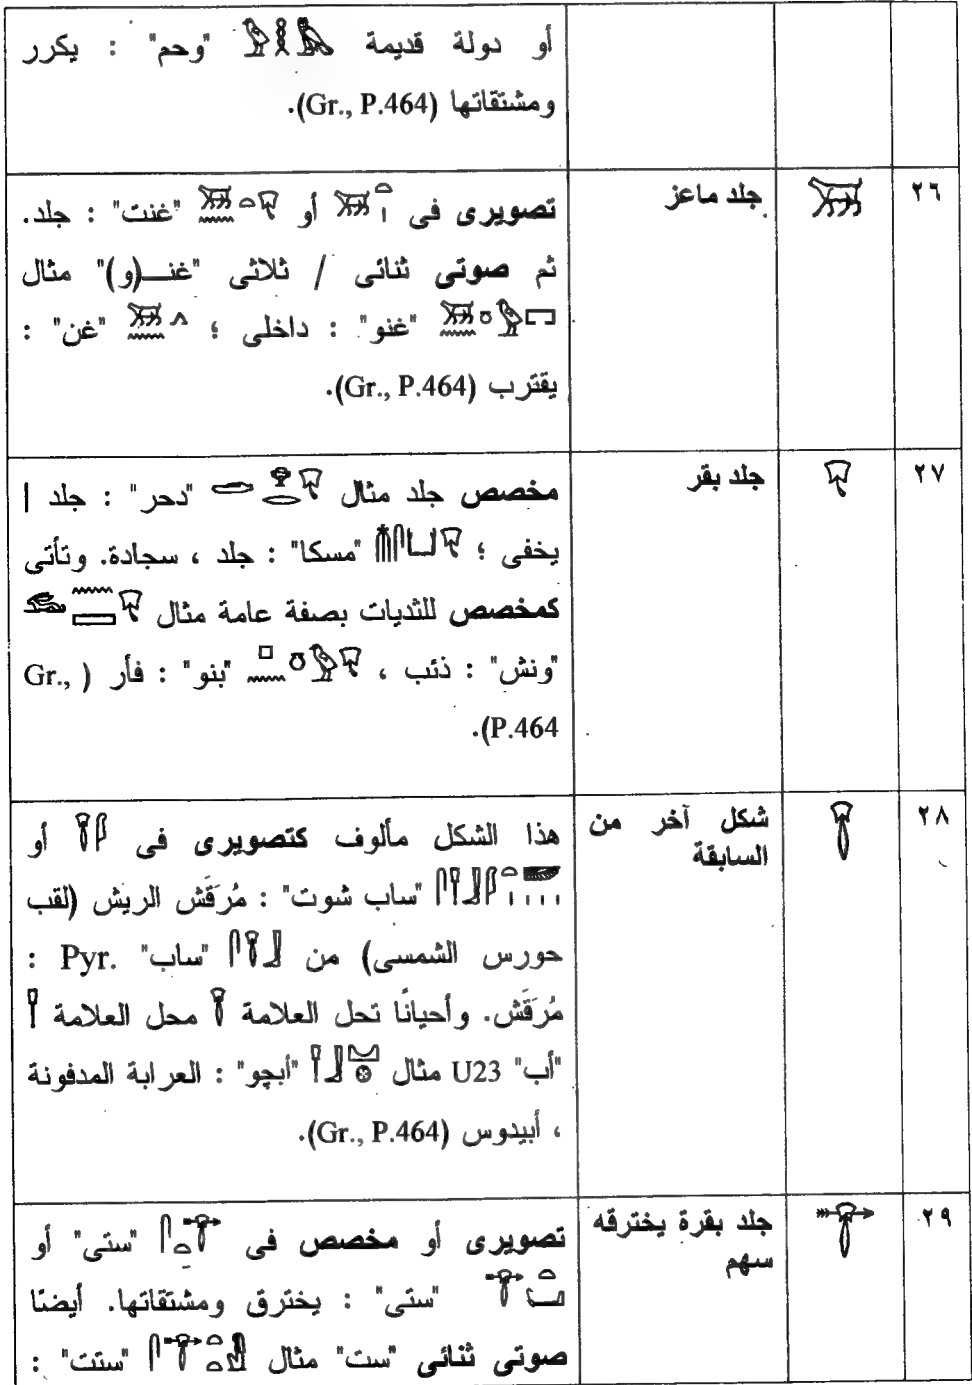 أو دولة قديمة "وحم" : يكرر
ومشتقاتها (Gr., P.464).
٢٦
جلد ماعز
تصويرى فى أو "غنت" : جلد.
ثم صوتى ثنائى / ثلاثى "غنـ(و)" مثال
"غنو" : داخلى ؛ "غن" :
يقترب (Gr., P.464).
٢٧
جلد بقر
مخصص جلد مثال "دحر" : جلد |
يخفى ؛ "مسكا" : جلد ، سجادة. وتأتى
كمخصص للثديات بصفة عامة مثال
"ونش" : ذئب ، "بنو" : فأر (Gr.,
P.464).
٢٨
شكل آخر من
السابقة
هذا الشكل مألوف كتصويرى فى أو
"ساب شوت" : مُرَقَش الريش (لقب
حورس الشمسى) من "ساب" Pyr. :
مُرَقَش. وأحيانًا تحل العلامة محل العلامة
"أب" U23 مثال "أبچو" : العرابة المدفونة
، أبيدوس (Gr., P.464).
٢٩
جلد بقرة يخترقه
سهم
تصويرى أو مخصص فى "ستى" أو
"ستى" : يخترق ومشتقاتها. أيضًا
صوتى ثنائى "ست" مثال "ستت" :